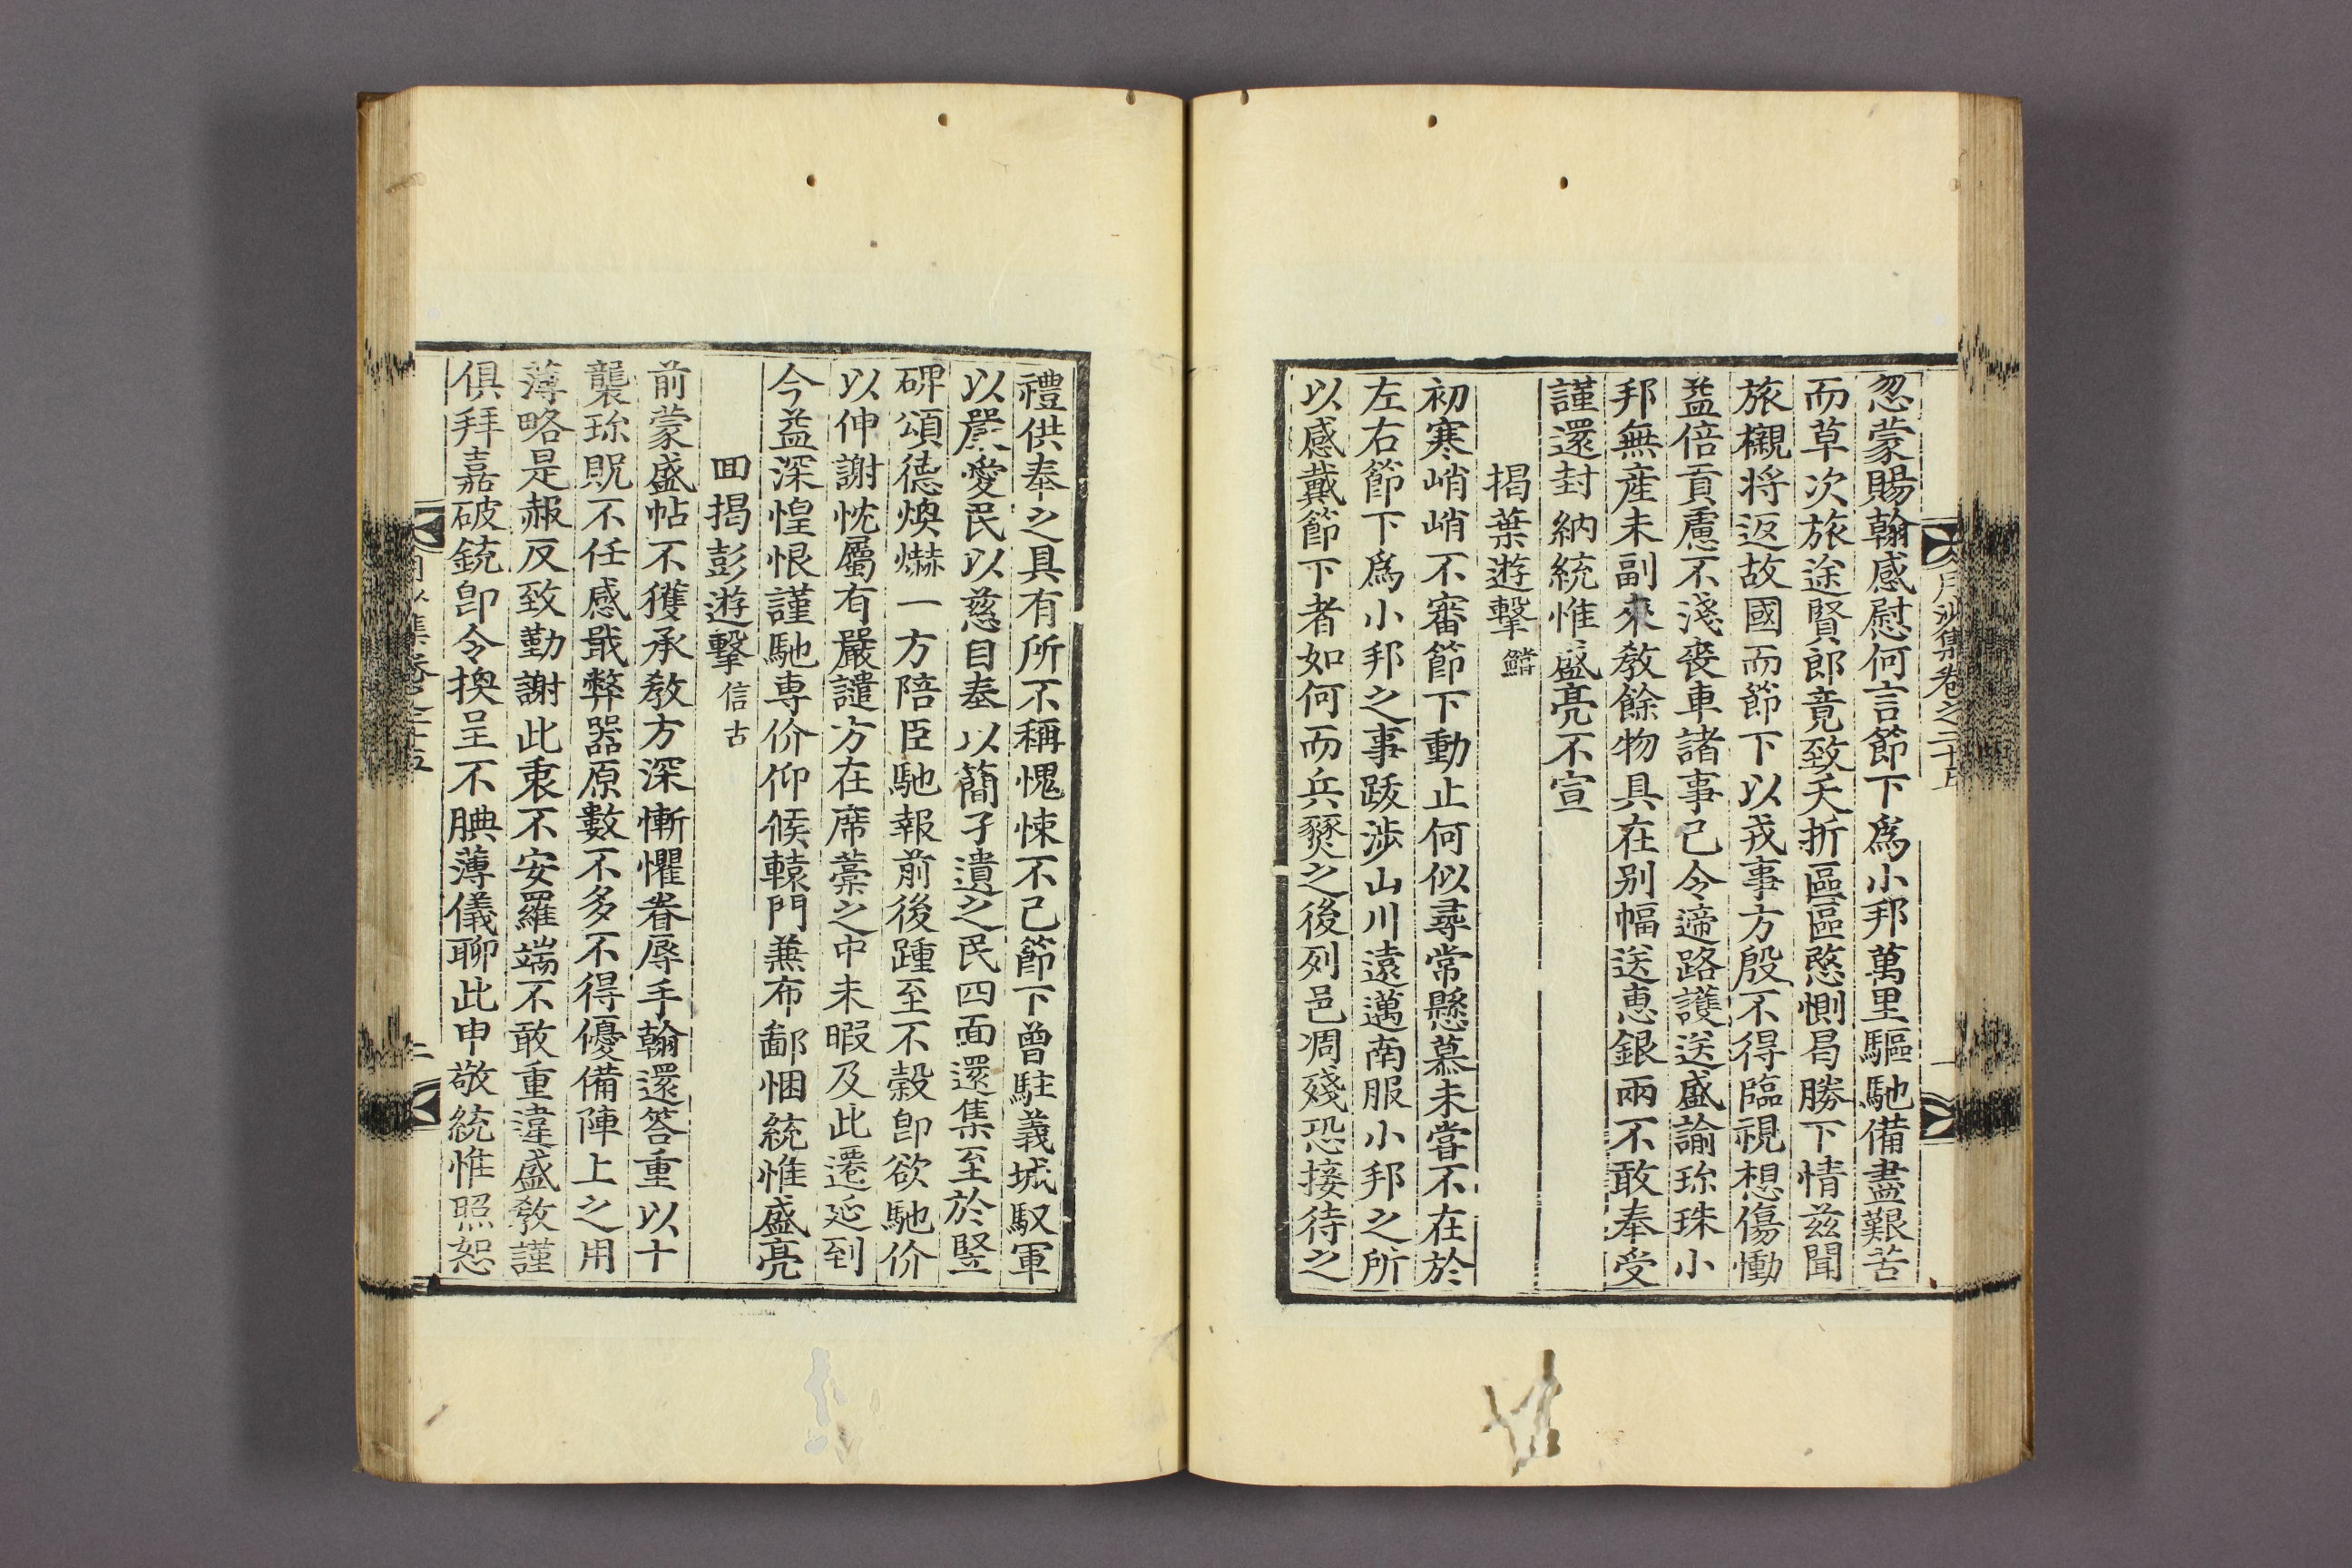 月沙集卷之三十五
一
忽蒙賜翰感慰何言節下爲小邦萬里驅馳備盡艱苦
而草次旅途賢郎竟致夭折區區慜惻曷勝下情茲聞
旅櫬將返故國而節下以戎事方殷不得臨視想傷慟
益倍貢慮不淺喪車諸事已令遞路護送盛諭珎珠小
邦無産未副來教餘物具在别幅送惠銀兩不敢奉受
謹還封納統惟盛亮不宣
揭葉遊擊鱛
初寒峭峭不審節下動止何似尋常懸慕未甞不在於
左右節下爲小邦之事跋涉山川遠邁南服小邦之所
以感戴節下者如何而兵燹之後列邑凋殘恐接待之
禮供奉之具有所不稱愧悚不已節下曾駐義城馭軍
以嚴愛民以慈自奉以簡孑遺之民四面還集至於竪
碑頌德煥爀一方陪臣馳報前後踵至不穀卽欲馳价
以伸謝忱屬有嚴譴方在席藁之中未暇及此遷延到
今益深惶恨謹馳專价仰候轅門兼布鄙悃統惟盛亮
回揭彭遊擊信古
前蒙盛帖不獲承敎方深慚懼眷辱手翰還答重以十
襲珎貺不任感戢弊器原數不多不得優備陣上之用
薄略是赧反致勤謝此衷不安羅端不敢重違盛敎謹
俱拜嘉破銃卽令換呈不腆薄儀聊此申敬統惟照恕
月沙集卷之三十五
二